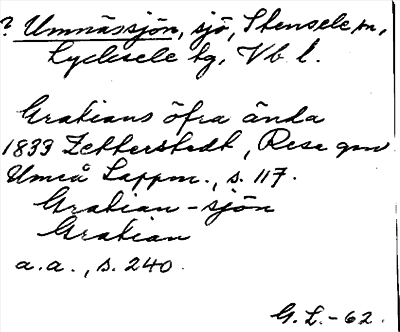 ? Umnässjön, sjö, Stensele sn,
Lycksele tg, Vb l.
Gratians öfra ända
1833 Zetterstedt, Resa gm
Umeå Lappm., s. 117.
Gratian-sjön
Gratian
a.a., s. 240.
G. L. -62.